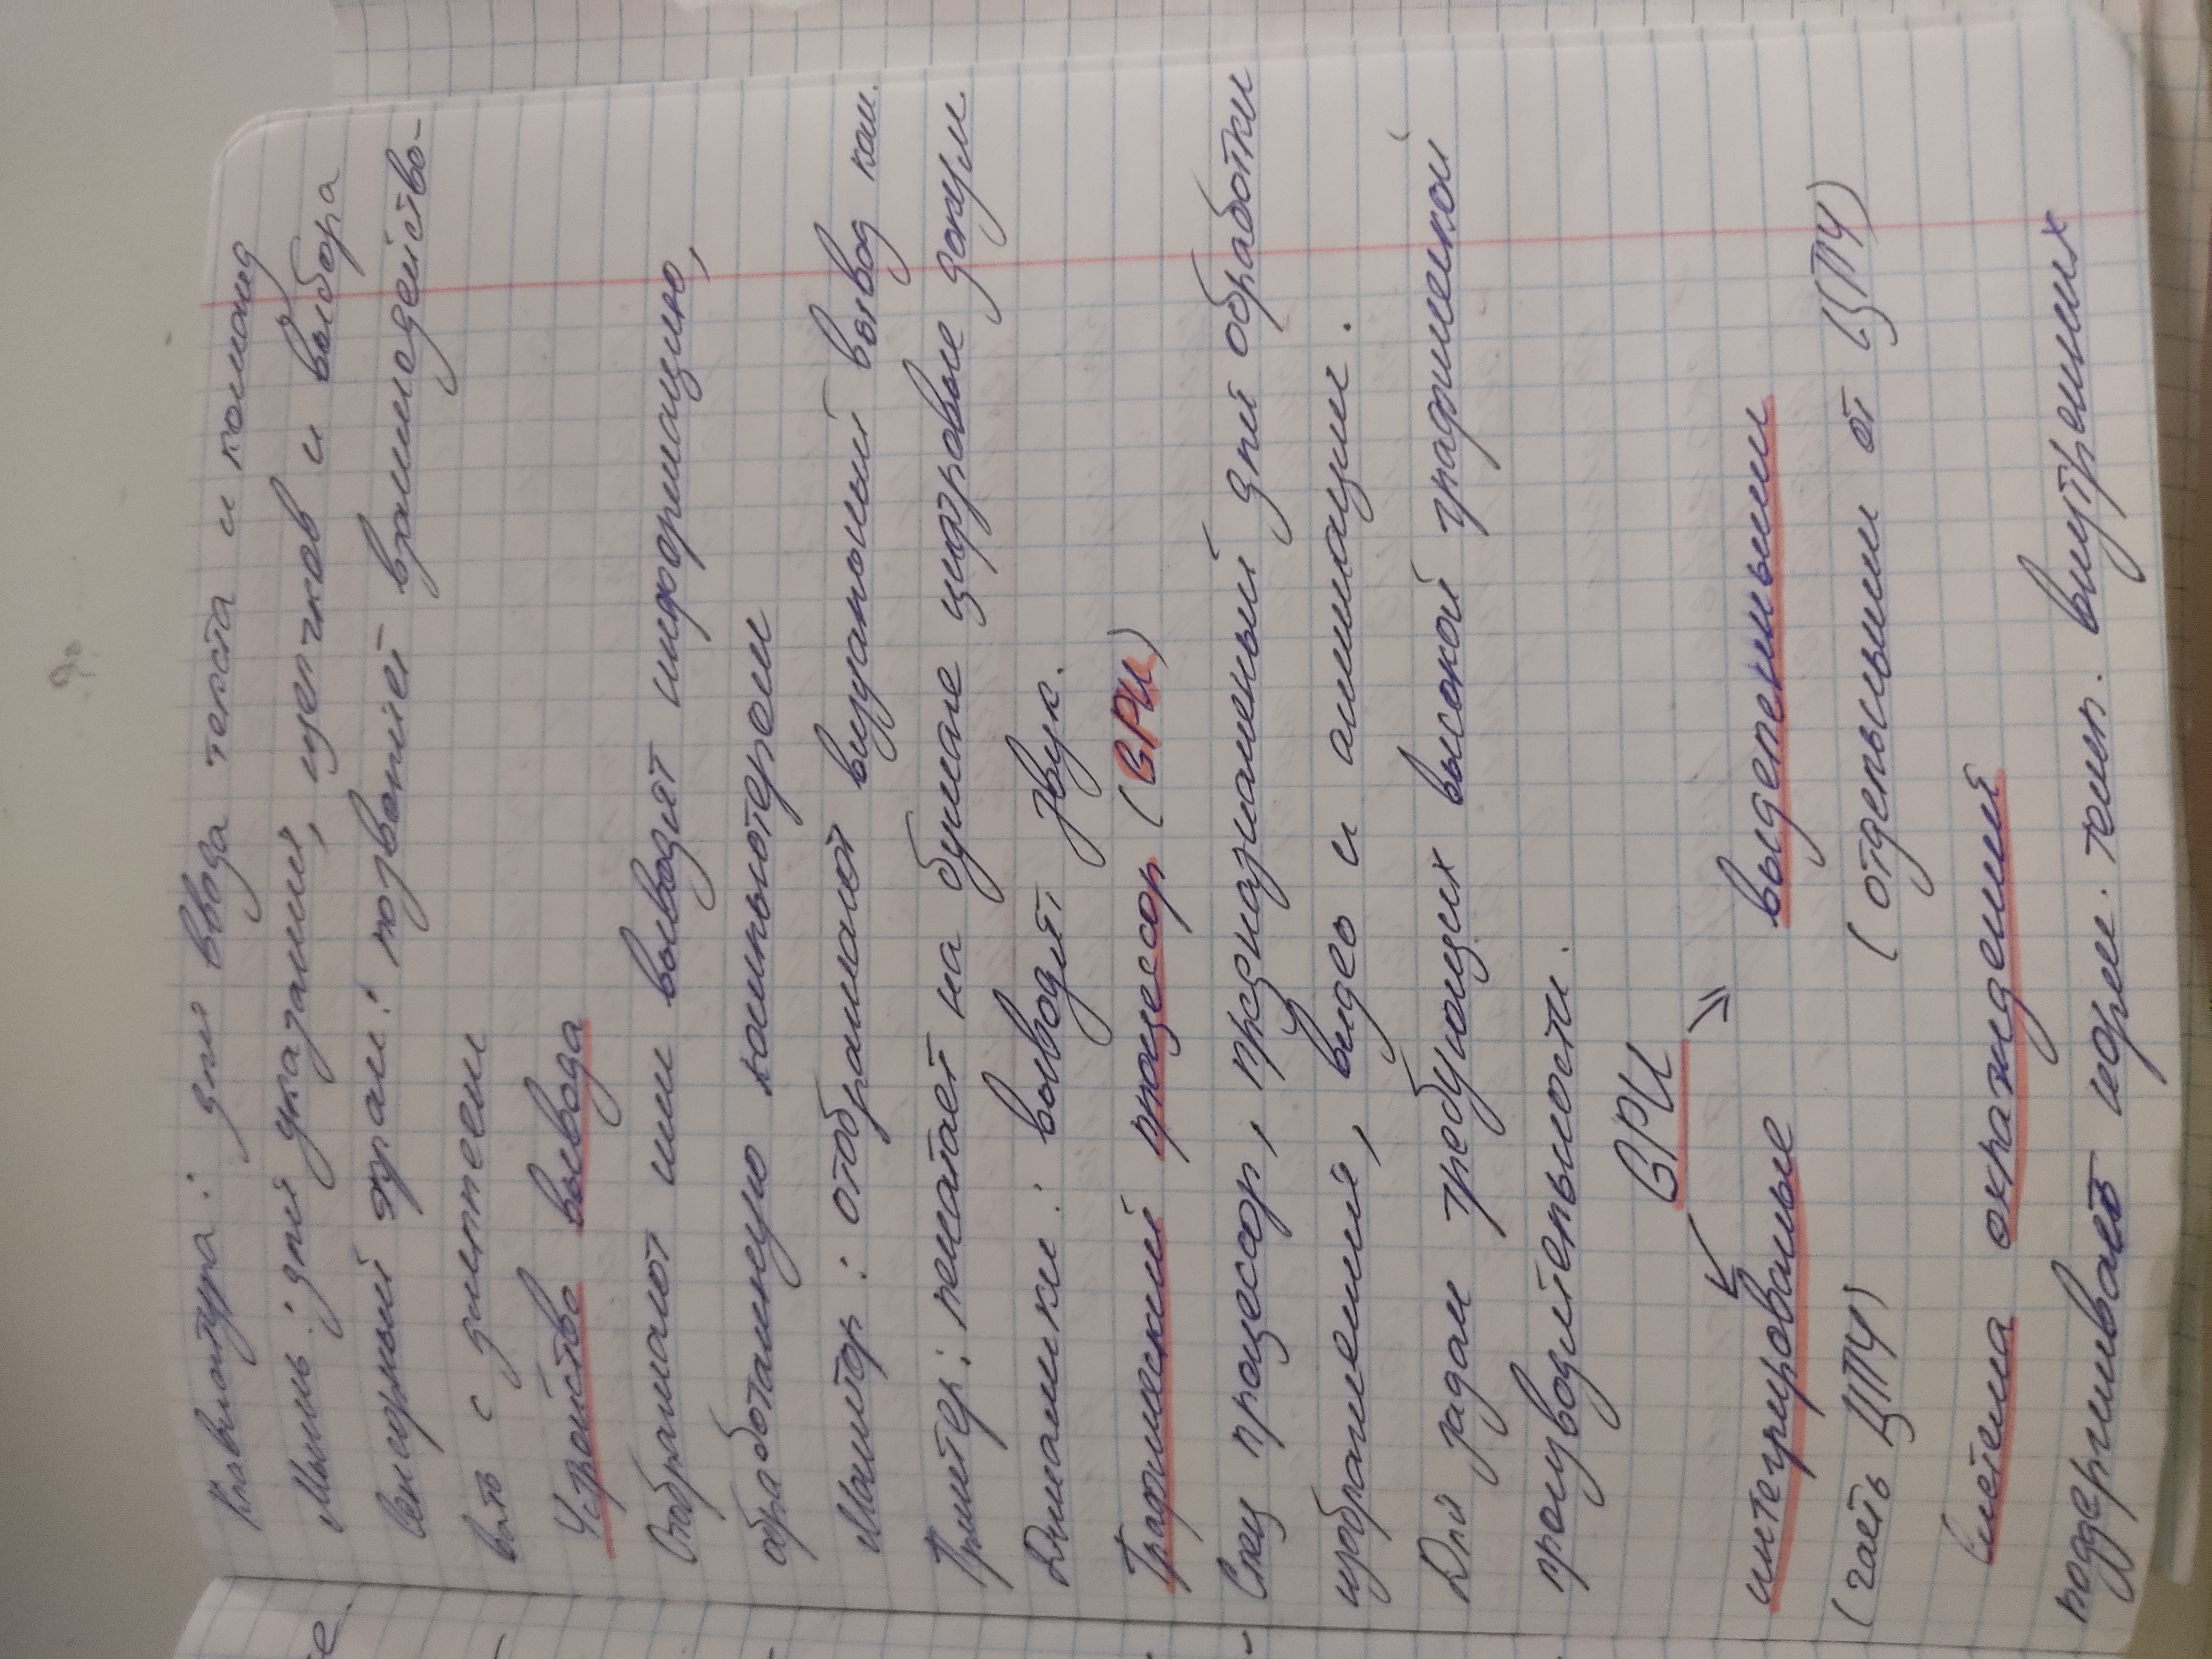 Клавиатура: для ввода текста и команд
Мышь: для указания, щелчков и выбора
Сенсорный экран: позволяет взаимодейство-
вать с дисплеем
Устройство вывода
Отображают или выводят информацию,
обработанную компьютером
Монитор: отображают визуальный вывод ком.
Принтер: печатает на бумаге цифровые докум.
Динамики: выводят звук.
Графический процессор (GPU)
Спец процессор, предназначеный для обработки
изображения, видео и анимации.
Для задач требующих высокой графической
производительности.
GPU
интегрированые выделенными
(часть ЦПУ) (отдельными от ЦПУ)
Система охраждения
поддерживает норм. темп. внутренних